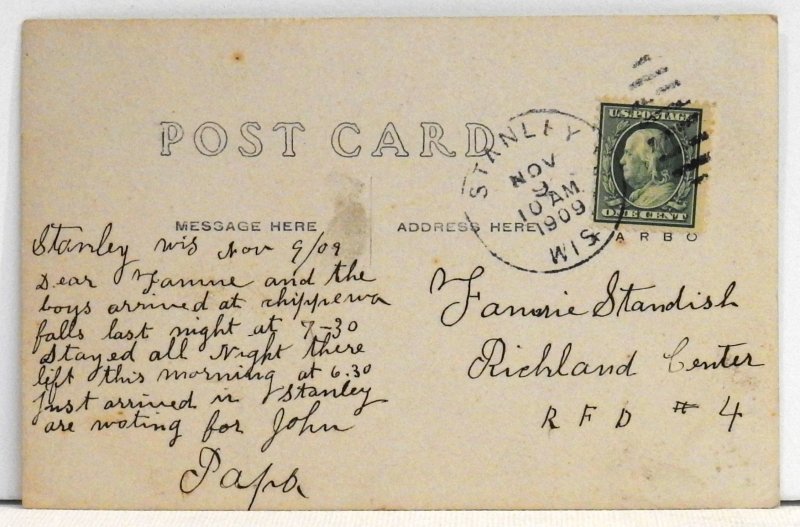 POST CARD
STANLEY
NOV
9
10 AM
1909
WIS
U.S. POSTAGE
ONE CENT
MESSAGE HERE
ADDRESS HERE
ARBO
Stanley wis Nov 9/09
Dear and the
boys arrived at chippewa
falls last night at 7-30
Stayed all Night there
lift this morning at 6.30
Just arrived in Stanley
are wating for John
Papa
Standish
Richland Center
R F D # 4